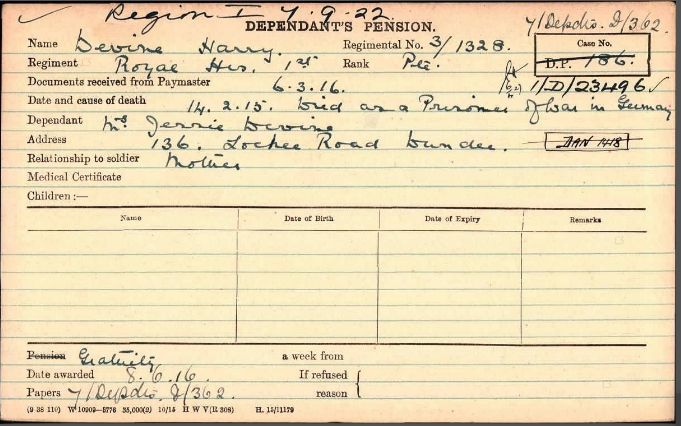 Region I 7.9.22
7/Depdts. D/362.
DEPENDANT'S PENSION.
Name Devine Harry. Regimental No. 3/1328. Case No.
Regiment Royal Hrs. 1st Rank Pte. D.P. 186.
Documents received from Paymaster 6.3.16. 1/D/23496
Date and cause of death 14.2.15. Died as a Prisoner of War in Germany
Dependant Mrs Jessie Devine
Address 136. Lochee Road Dundee. DAN 1418
Relationship to soldier Mother
Medical Certificate
Children:—
Name Date of Birth Date of Expiry Remarks
Pension Gratuity a week from
Date awarded 8.6.16. If refused
Papers 7/Depdts. D/362. reason
(9 38 110) W 10909—5776 35,000(2) 10/15 H W V(R 308) H. 15/11179